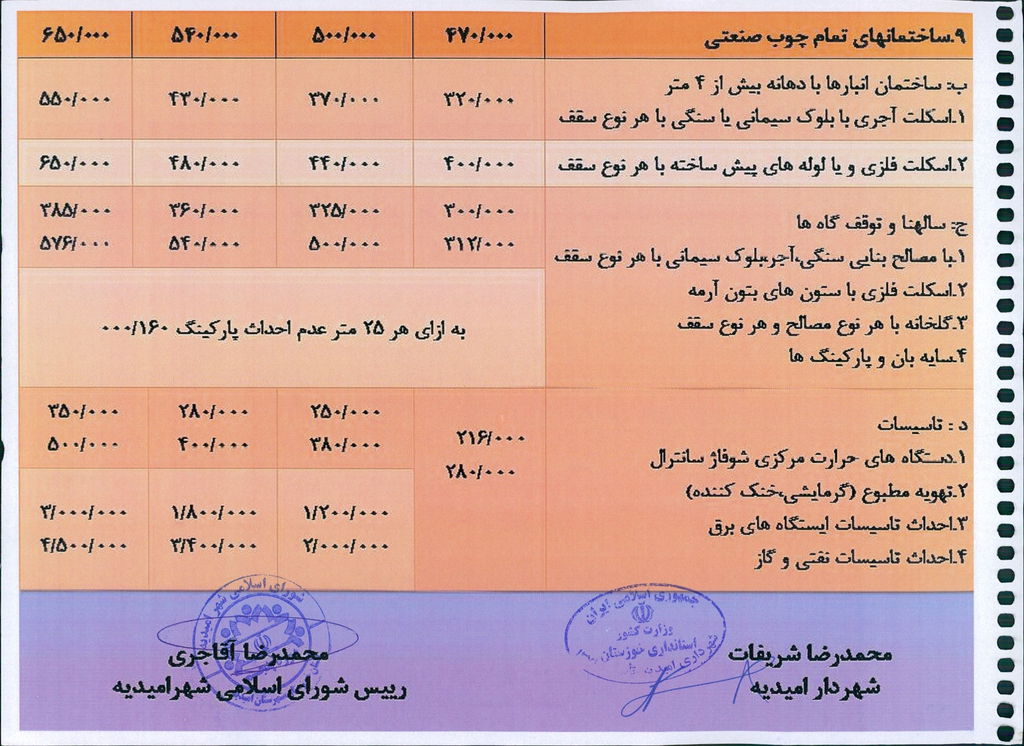 ۹.ساختمانهای تمام چوب صنعتی ۴۷۰/۰۰۰ ۵۰۰/۰۰۰ ۵۴۰/۰۰۰ ۶۵۰/۰۰۰
ب: ساختمان انبارها با دهانه بیش از ۴ متر
۱.اسکلت آجری با بلوک سیمانی یا سنگی با هر نوع سقف
۳۲۰/۰۰۰ ۳۷۰/۰۰۰ ۴۳۰/۰۰۰ ۵۵۰/۰۰۰
۲.اسکلت فلزی و یا لوله های پیش ساخته با هر نوع سقف ۴۰۰/۰۰۰ ۴۴۰/۰۰۰ ۴۸۰/۰۰۰ ۶۵۰/۰۰۰
ج: سالهنا و توقف گاه ها
۱.با مصالح بنایی سنگی،آجر،بلوک سیمانی با هر نوع سقف
۲.اسکلت فلزی با ستون های بتون آرمه
۳.گلخانه با هر نوع مصالح و هر نوع سقف
۴.سایه بان و پارکینگ ها
۳۰۰/۰۰۰ ۳۲۵/۰۰۰ ۳۶۰/۰۰۰ ۳۸۵/۰۰۰
۳۱۲/۰۰۰ ۵۰۰/۰۰۰ ۵۴۰/۰۰۰ ۵۷۶/۰۰۰
به ازای هر ۲۵ متر عدم احداث پارکینگ ۰۰۰/۱۶۰
د : تاسیسات
۱.دستگاه های حرارت مرکزی شوفاژ سانترال
۲.تهویه مطبوع (گرمایشی،خنک کننده)
۳.احداث تاسیسات ایستگاه های برق
۴.احداث تاسیسات نفتی و گاز
۲۱۶/۰۰۰ ۲۵۰/۰۰۰ ۲۸۰/۰۰۰ ۳۵۰/۰۰۰
۲۸۰/۰۰۰ ۳۸۰/۰۰۰ ۴۰۰/۰۰۰ ۵۰۰/۰۰۰
۱/۲۰۰/۰۰۰ ۱/۸۰۰/۰۰۰ ۳/۰۰۰/۰۰۰
۲/۰۰۰/۰۰۰ ۳/۴۰۰/۰۰۰ ۴/۵۰۰/۰۰۰
محمدرضا شریفات
شهردار امیدیه
جمهوری اسلامی ایران
وزارت کشور
استانداری خوزستان
شهرداری امیدیه
محمدرضا آقاجری
رییس شورای اسلامی شهرامیدیه
شورای اسلامی شهر امیدیه